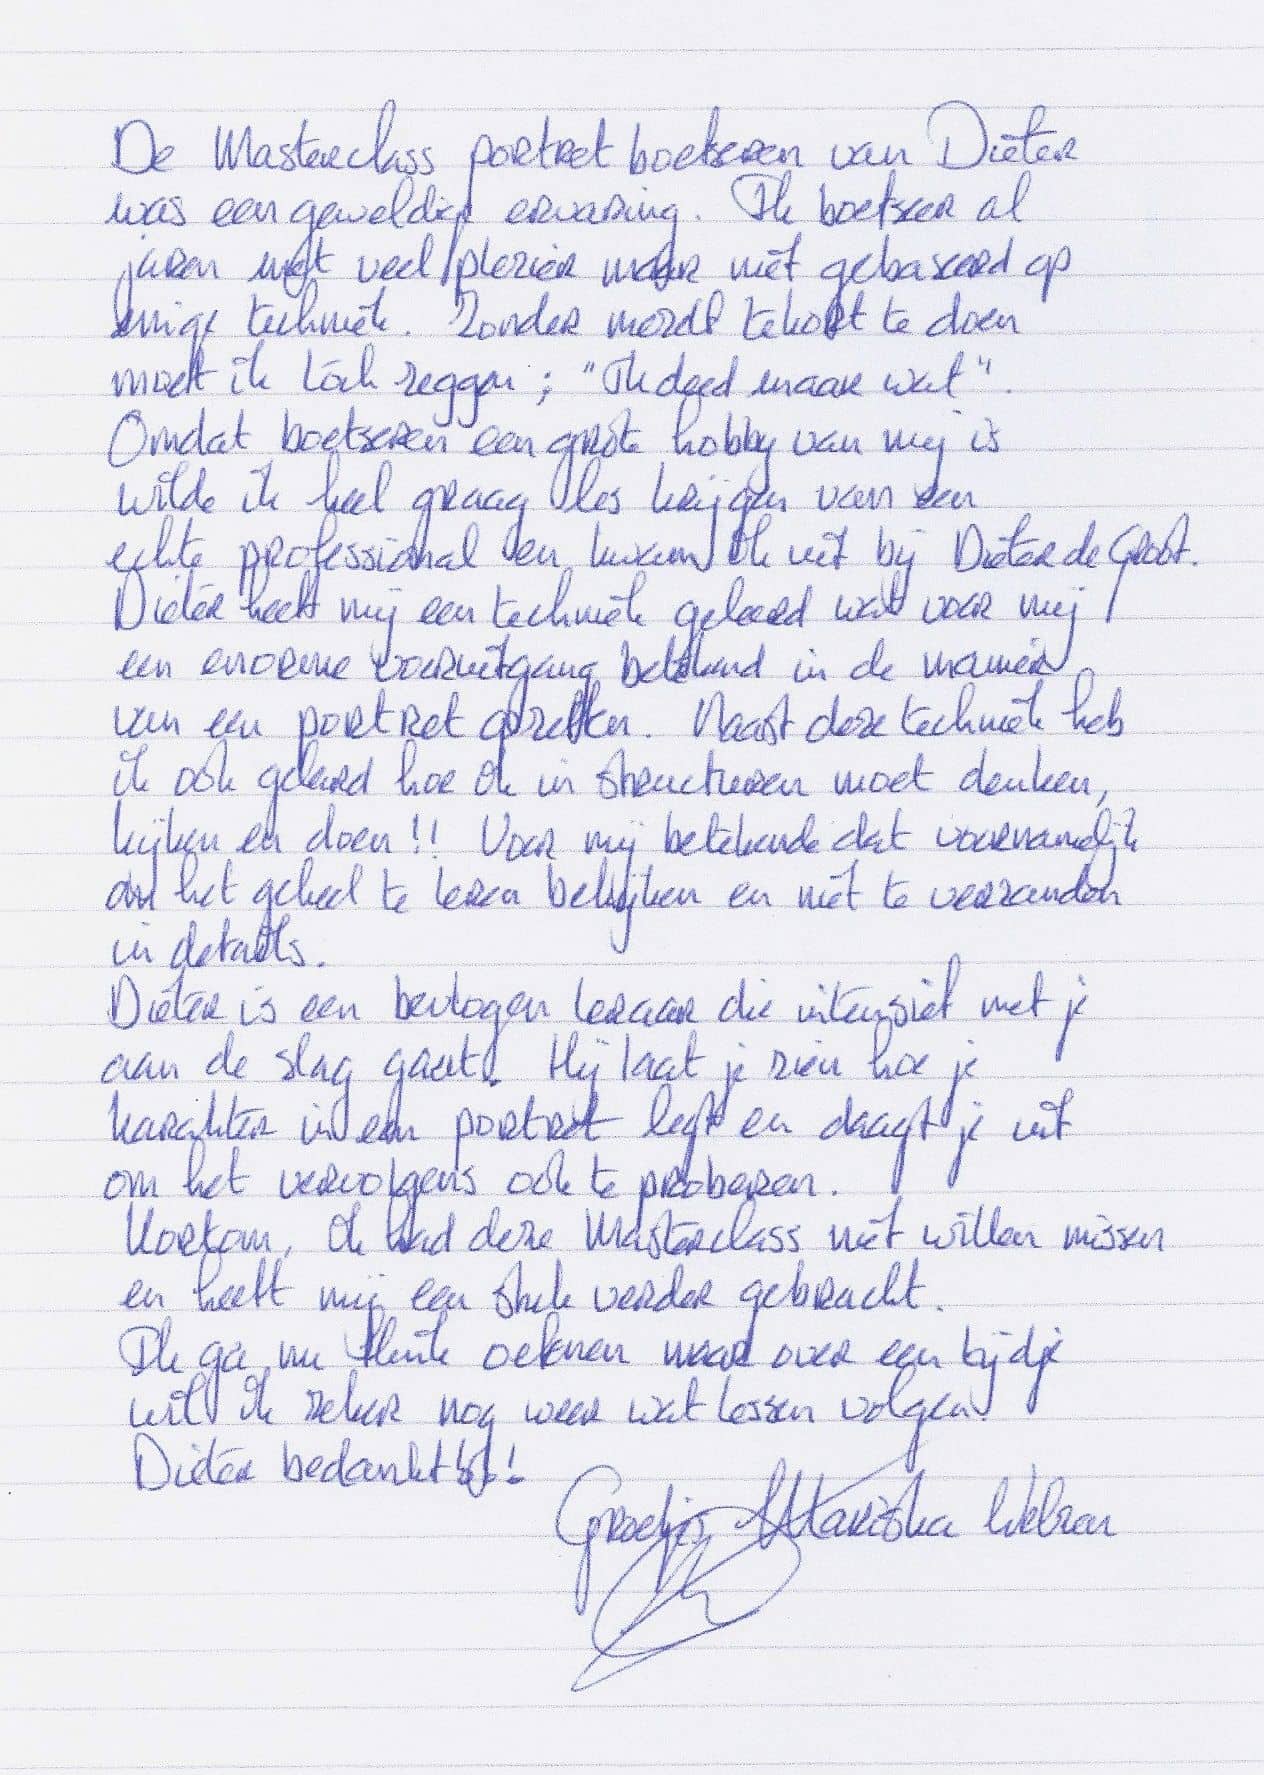 De Masterclass portret boetseren van Dieter
was een geweldige ervaring. Ik boetseer al
jaren met veel plezier maar niet gebaseerd op
enige techniek. Zonder mezelf tekort te doen
moet ik toch zeggen; "Ik deed maar wat".
Omdat boetseren een grote hobby van mij is
wilde ik heel graag les krijgen van een
echte professional en kwam ik uit bij Dieter de Groot.
Dieter heeft mij een techniek geleerd wat voor mij
een enorme vooruitgang betekend in de manier
van een portret opzetten. Naast deze techniek heb
ik ook geleerd hoe ik in structuren moet denken,
kijken en doen!! Voor mij betekende dat voornamelijk
om het geheel te leren bekijken en niet te verzanden
in details.
Dieter is een bevlogen leraar die intensief met je
aan de slag gaat. Hij laat je zien hoe je
karakter in een portret legt en daagt je uit
om het vervolgens ook te proberen.
Kortom, ik had deze Masterclass niet willen missen
en heeft mij een stuk verder gebracht.
Ik ga nu flink oefenen maar over een tijdje
wil ik zeker nog weer wat lessen volgen.
Dieter bedankt!!!
Groetjes Mariska